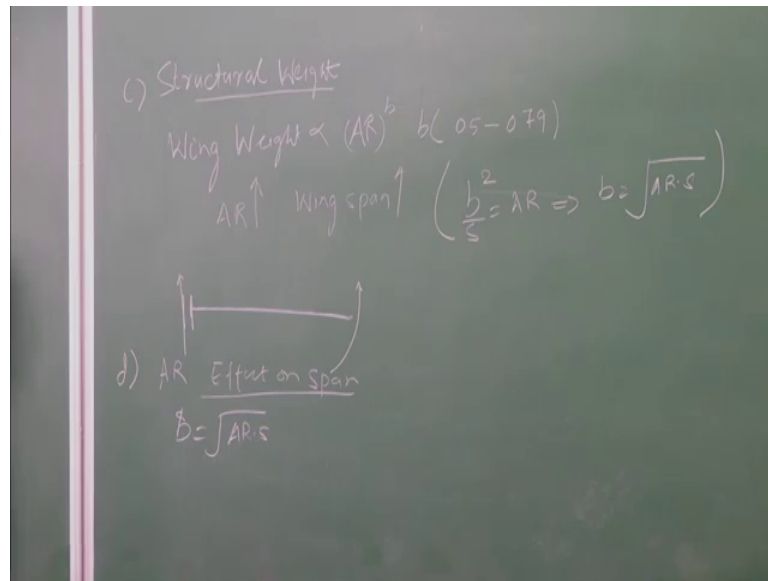 c) Structural Weight
Wing Weight ∝ (AR)^b b( 05-079)
AR↑ Wing span↑ ( b²/S = AR ⇒ b=√AR.S )
d) AR Effect on span
b=√AR.S